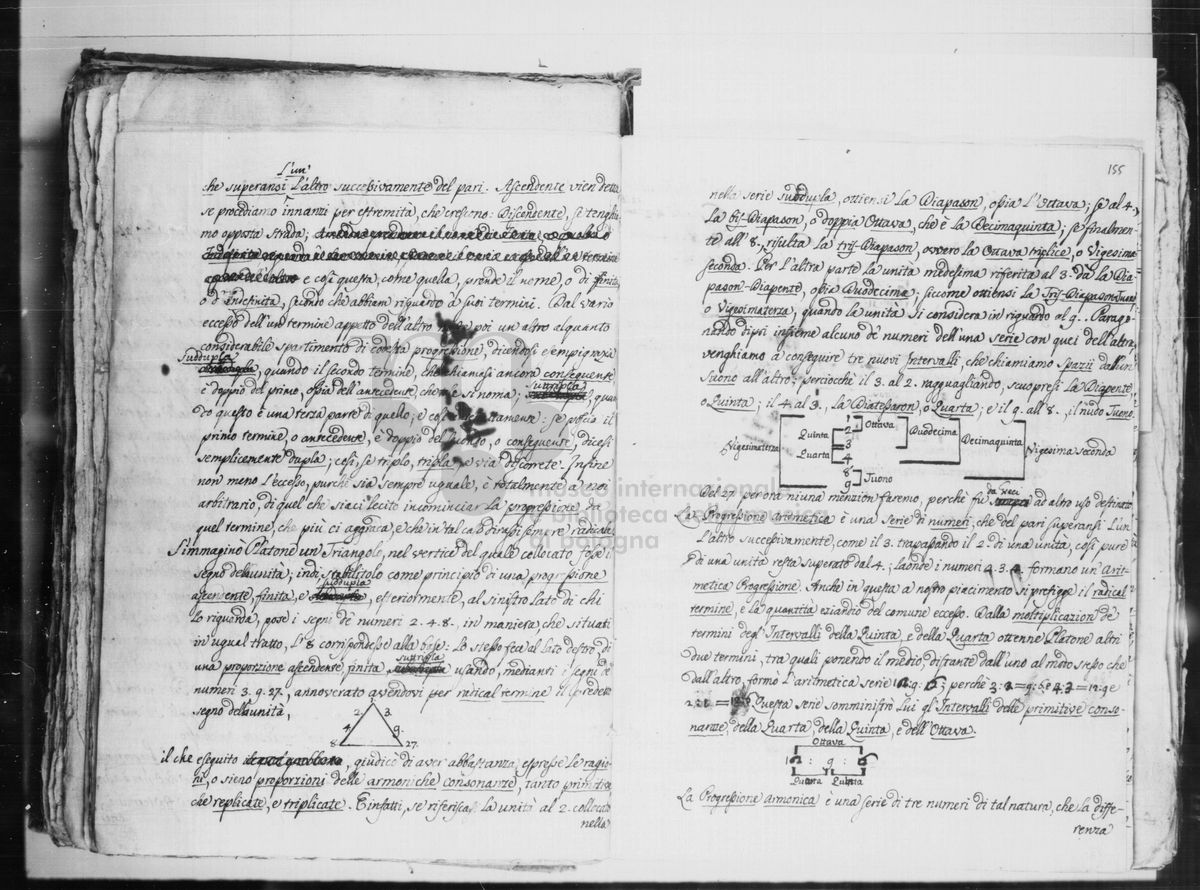 L'un'
che superansi l'altro successivamente del pari. Ascendente vien detta
se procediamo innanzi per estremità, che crescono: Discendente, se tenghia-
mo opposta strada;
e così questa, come quella, prende il nome, o di finita,
o d'indefinita, secondo che abbiam riguardo a' suoi termini. Dal vario
eccesso dell'un termine appetto dell'altro poi un'altro alquanto
considerabile spartimento di cotesta progressione, dicendosi e'
suddupla
, quando il secondo termine, che chiamasi ancora conseguente
è doppio del primo, ossia dell'antecedente, che si noma; suttripla, quan-
do questo è una terza parte di quello; e così : se poscia il
primo termine, o antecedente, è doppio del secondo, o conseguente, dicesi
semplicemente dupla; così, se triplo, tripla, e via discorrete. Infine
non meno l'eccesso, purchè sia sempre uguale, è totalmente a noi
arbitrario, di quel che siaci lecito incominciar la progressione da
quel termine, che più ci aggrada, e che in tal caso dirassi essere radicale.
S'immaginò Platone un Triangolo, nel vertice del quale collocato fosse il
segno della unità; indi stabilitolo come principio di una progressione
suddupla
ascendente, finita, e , esteriormente, al sinistro lato di chi
lo riguarda, pose i segni de' numeri 2. 4. 8., in maniera, che situati
in ugual tratto, l'8 corrispondesse alla base: Lo stesso fece al lato destro, di
suttripla
una proporzione ascendente, finita, usando, medianti i segni de'
numeri 3. 9. 27., annoverato avendovi per radical termine il predetto
segno dell'unità,
1
2 3
4 9.
8 27.
il che eseguito , giudicò di aver abbastanza espresse le ragio-
ni, o sieno proporzioni delle armoniche consonanze, tanto primitive
che replicate, e triplicate. E infatti, se riferiscasi la unità al 2. collocato
nella
155
nella serie suddupla, ottiensi la Diapason, ossia l'Ottava; se al 4.,
la bis-Diapason, o doppia Ottava, che è la Decimaquinta; se finalmen-
te all'8., risulta la tris-Diapason, ovvero la Ottava triplice, o Vigesima
seconda. Per l'altra parte la unità medesima riferita al 3. dà la Dia-
pason-Diapente, ossia Duodecima; siccome ottiensi la
o Vigesimaterza, quando la unità si considera in riguardo al 9.. Parago-
nando dipoi insieme alcuno de' numeri dell'una serie con quei dell'altra,
venghiamo a conseguire tre nuovi Intervalli, che chiamiamo Spazii dall'un
Suono all'altro; perciocchè il 3. al 2. ragguagliando, scuopresi la Diapente,
o Quinta; il 4. al 3., la Diatessaron, o Quarta; e il 9. all'8., il nudo Tuono.
1 Ottava
Quinta 2 Duodecima
Vigesimaterza 3 Decimaquinta
Quarta 4 Vigesima seconda
8 Tuono
9
da Greci
Del 27. per ora niuna menzion faremo, perchè fu ad altro uso destinato.
La Progressione Aritmetica è una serie di numeri, che del pari superansi l'un
l'altro successivamente, come il 3. trapassando il 2. di una unità, così pure
di una unità resta superato dal 4.; laonde i numeri 2. 3. 4. formano un'Arit-
metica Progressione. Anche in questa a nostro piacimento si prefigge il radical
termine, e la quantità eziandio del comune eccesso. Dalla moltiplicazion de'
termini degl'Intervalli della Quinta, e della Quarta ottenne Platone altri
due termini, tra quali ponendo il medio, distante dall'uno al modo stesso che
dall'altro, formò l'aritmetica serie 12: 9: 6; perchè 3: 2 = 9: 6 e 4: 3 = 12: 9 e
Questa serie somministrò lui gl'Intervalli delle primitive conso-
nanze, della Quarta, della Quinta, e dell'Ottava.
Ottava
12 : 9 : 6
Quarta Quinta
La Progressione Armonica è una serie di tre numeri di tal natura, che la diffe-
renza
museo internazionale
e biblioteca della musica
di bologna